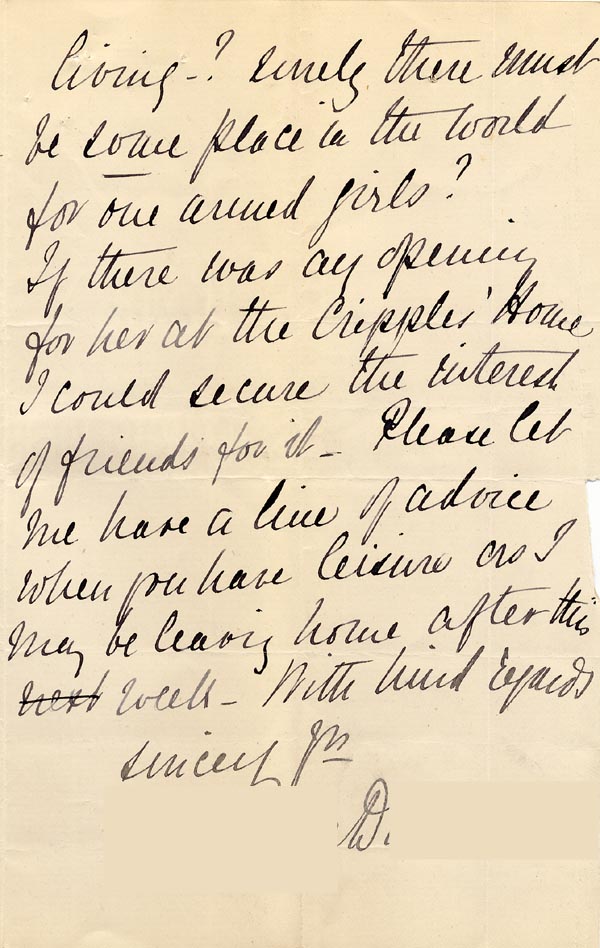 living -? surely there must
be some place in the world
for one armed girls?
If there was any opening
for her at the Cripples' Home
I could secure the interest
of friends for it - Please let
me have a line of advice
when you have leisure as I
may be leaving home after this
next week - With kind regards
sincerely yrs
D.